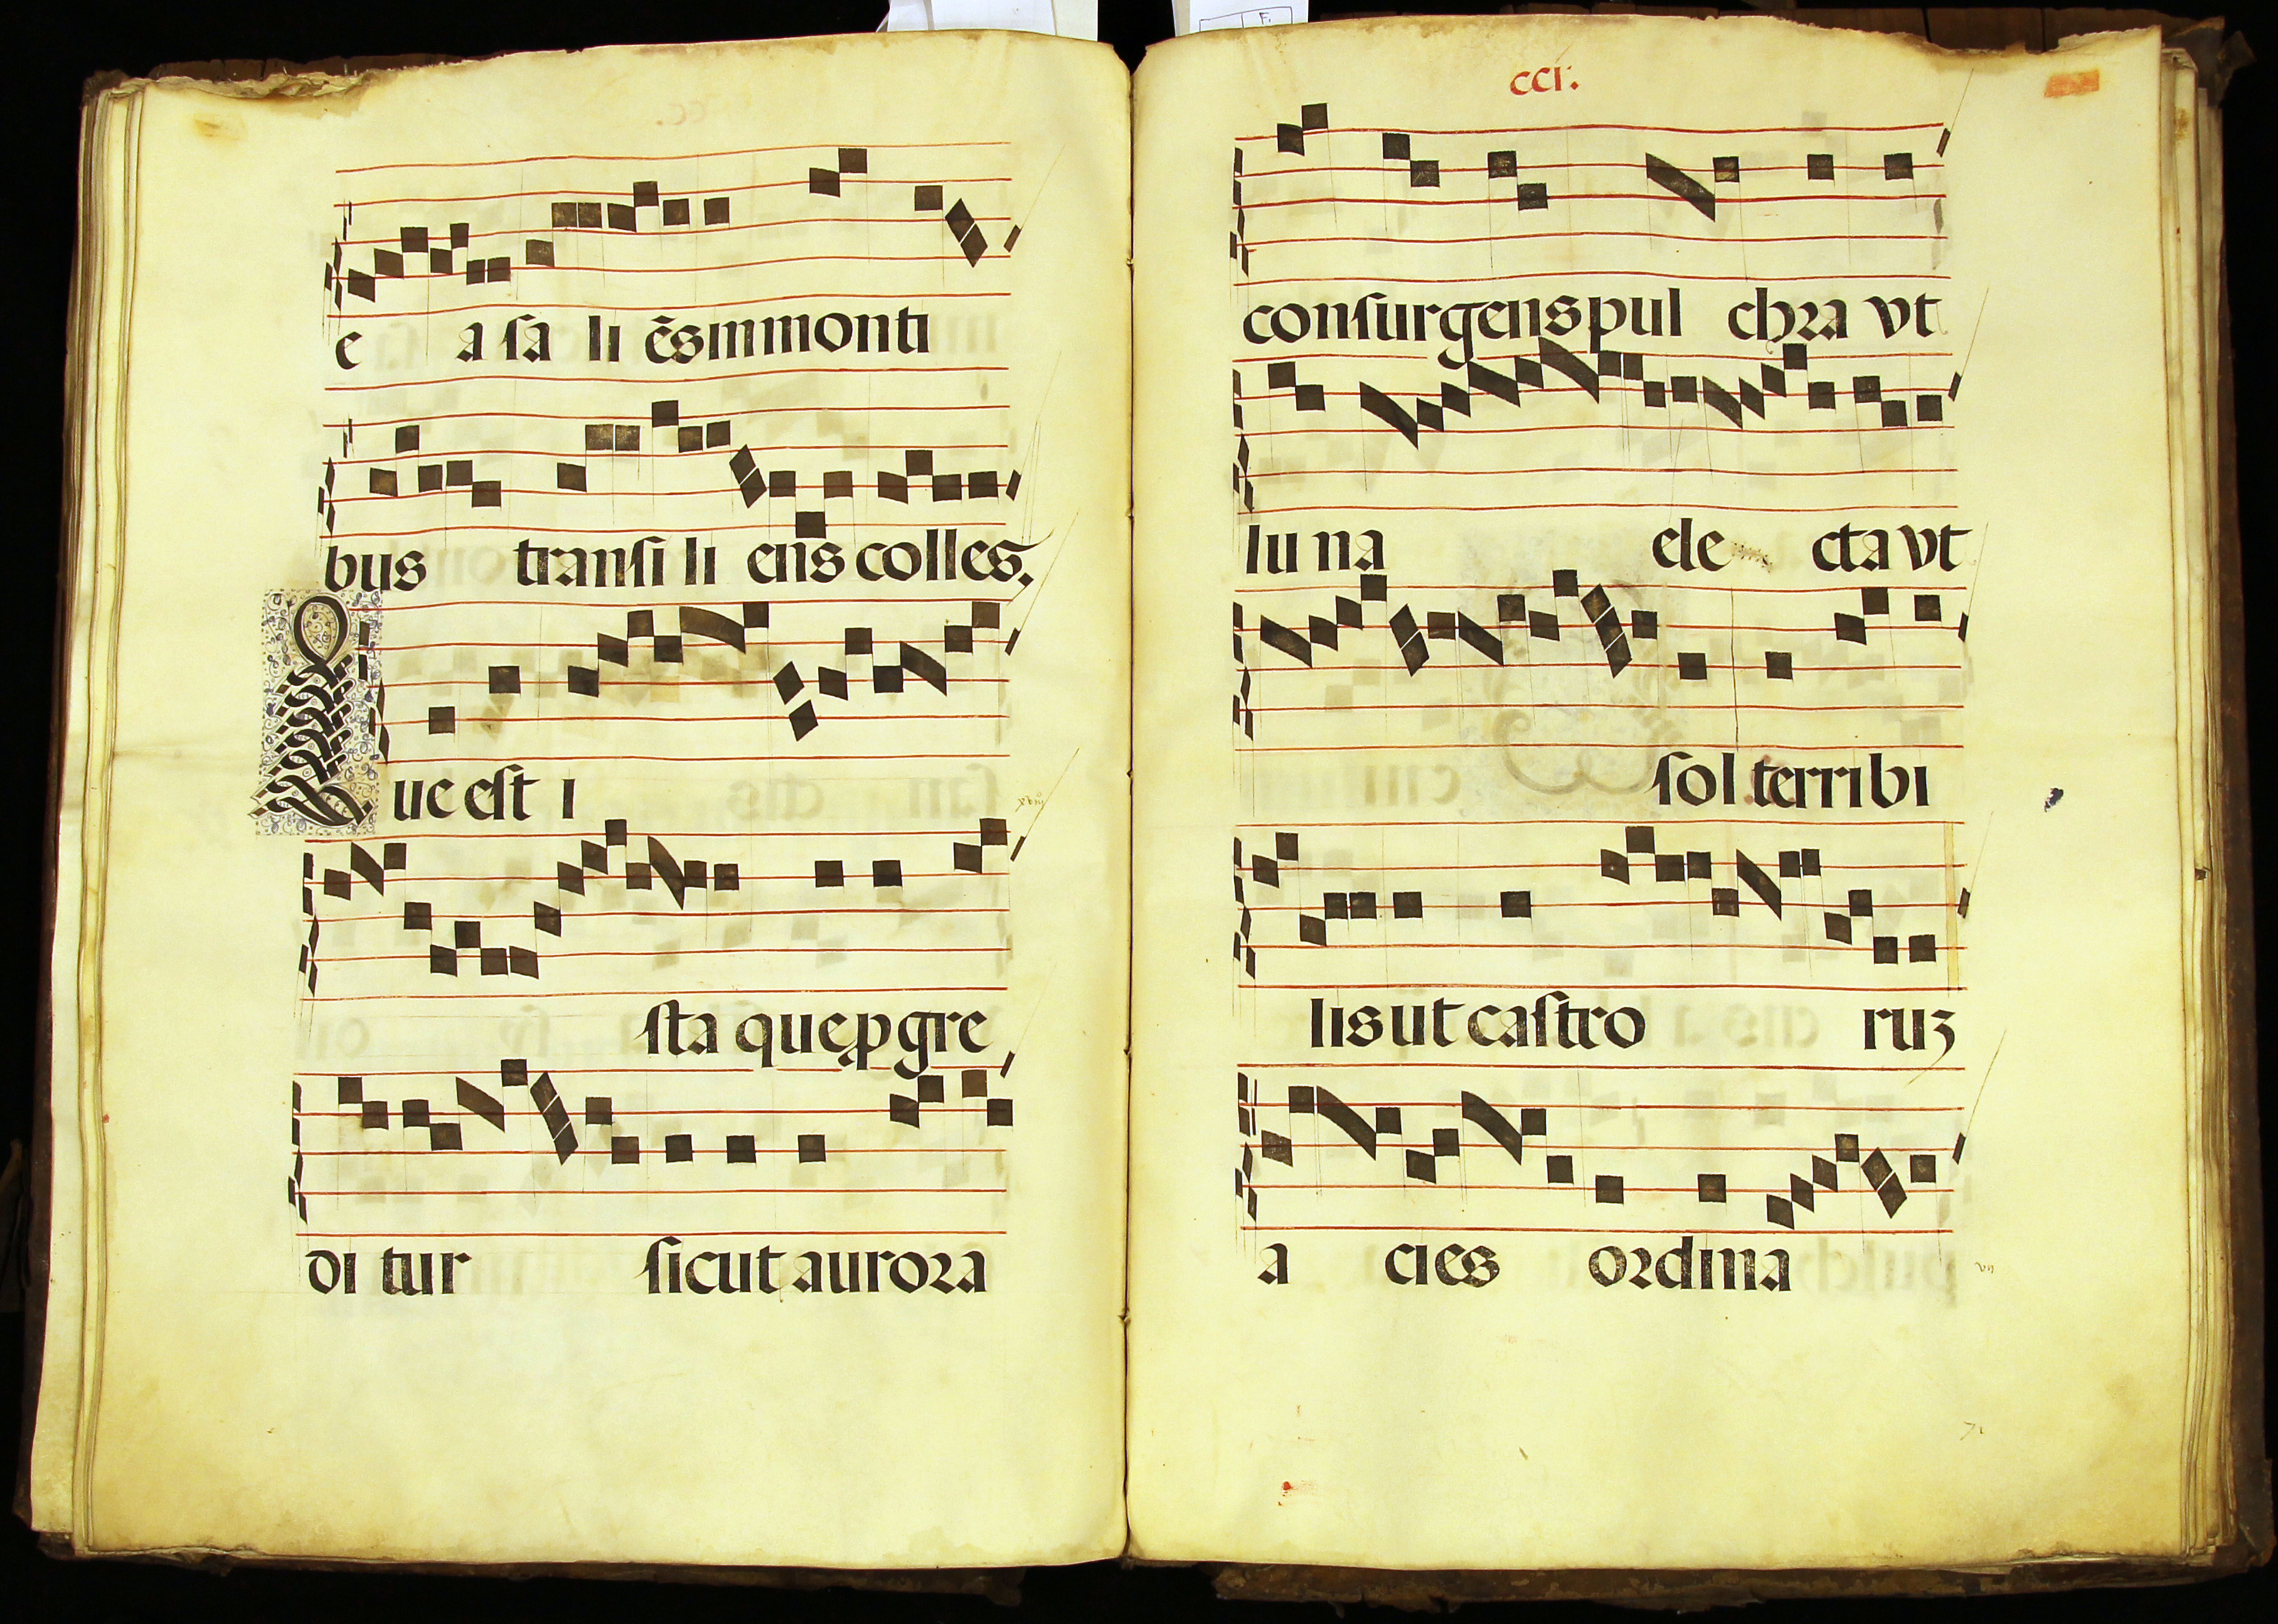 e a sa li ēs in monti
bus transi li ens colles.
Que est i
sta que ꝓgre
di tur sicut aurora
ccı.
consurgens pul chra vt
lu na ele cta vt
sol terribi
lis ut castro ruꝫ
a cies ordina